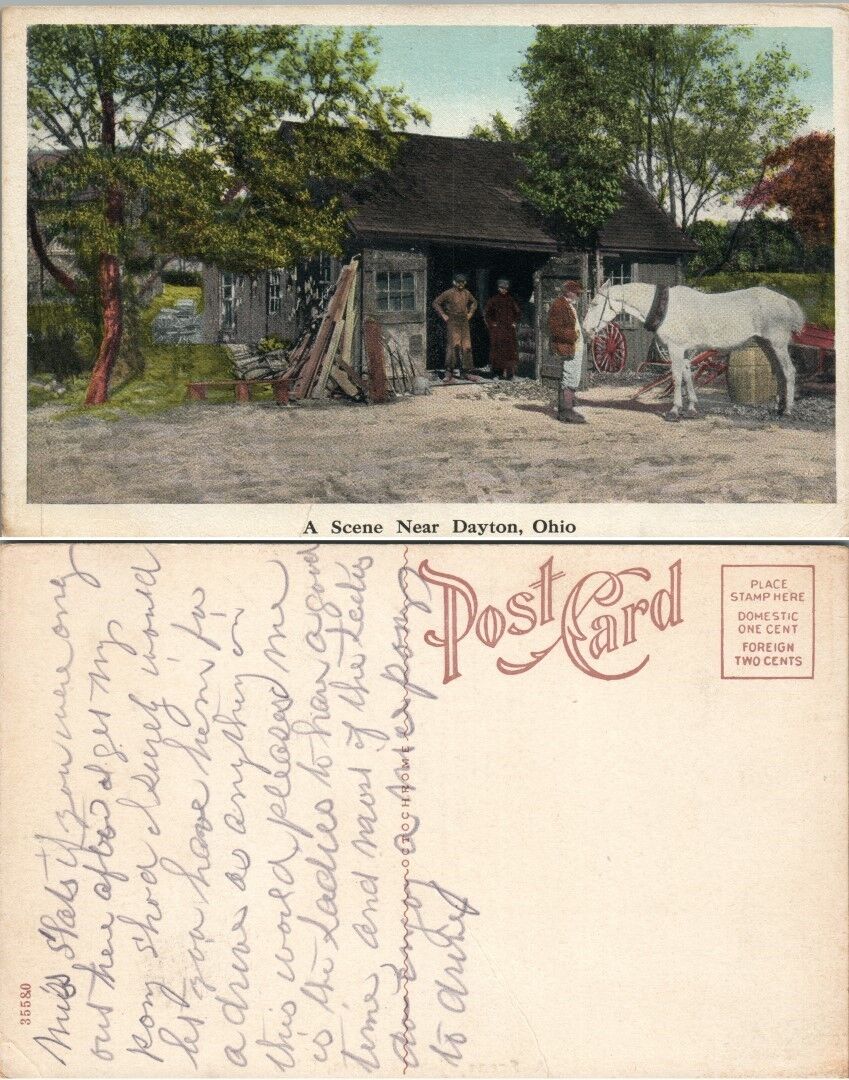 A Scene Near Dayton, Ohio
Post Card
PLACE
STAMP HERE
DOMESTIC
ONE CENT
FOREIGN
TWO CENTS
OCTOCHROME
35580
Miss Skats if you were ony
out here after I get my
pony shod I surely would
let you have him for
a drive as anything in
this world pleases me
is the Ladies to have a good
time and most of the Ladies
do enjoy a nice pony
to drive